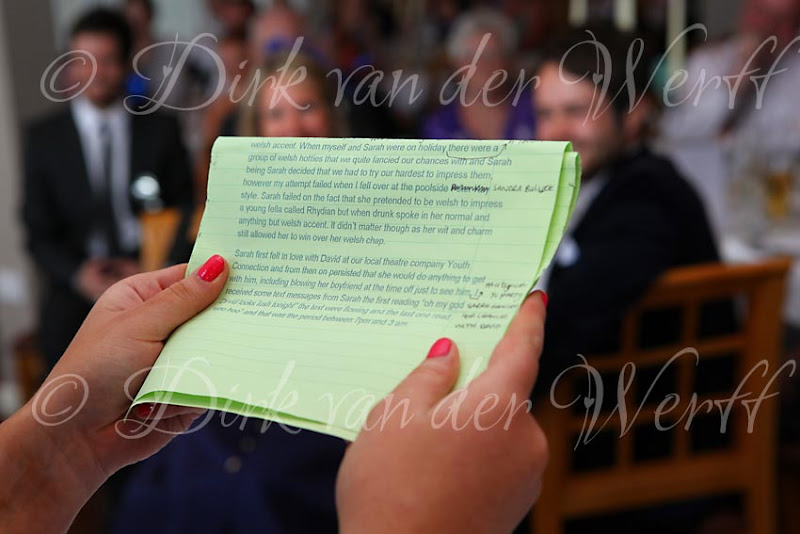 © Dirk van der Werff
welsh accent. When myself and Sarah on holiday there were a
group of welsh hotties that we quite fancied our chances with and Sarah
being Sarah decided that we had to try our hardest to impress them,
however my attempt failed when I fell over at the poolside SANDRA BULLOCK
style. Sarah failed on the fact that she pretended to be welsh to impress
a young fella called Rhydian but when drunk spoke in her normal and
anything but welsh accent. It didn't matter though as her wit and charm
still allowed her to win over her welsh chap.
Sarah first fell in love with David at our local theatre company Youth
Connection and from then on persisted that she would do anything to get
with him, including blowing her boyfriend at the time off just to see him.
received some text messages from Sarah the first reading "oh my god
David looks lush tonight" the text were flowing and the last one read
and that was the period between 7pm and 3 am.
WITH DAVID
© Dirk van der Werff
© Dirk van der Werff